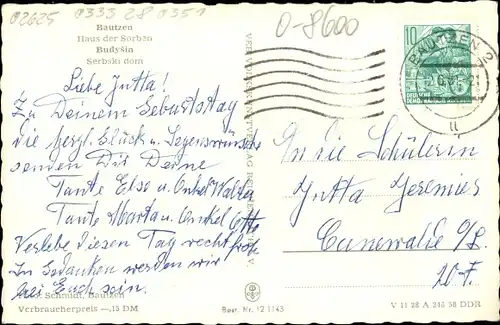 02625 0333 28 0351
0-8600
Bautzen
Haus der Sorben
Budyšin
Serbski dom
Liebe Jutta!
Zu Deinem Geburtstag
die herzl. Glück u. Segenswünsche
senden Dir Deine
Tante Else u. Onkel Walter
Tante Marta u. Onkel Otto
Verlebe diesen Tag recht froh
In Gedanken werden wir
bei Euch sein.
Schmidt, Bautzen
Verbraucherpreis —,15 DM
Best. Nr. 12 1143
10
BAUTZEN 2
DEUTSCHE
An die Schülerin
Jutta Jeremies
Cunewalde O/L.
V 11 28 A 245 58 DDR